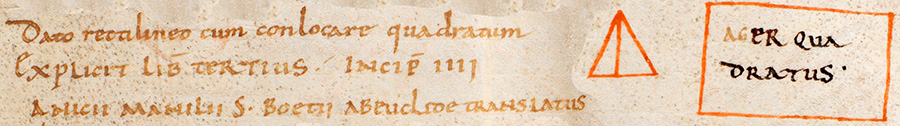 Dato rectilineo cum conlocare quadratum
Explicit lib̅ tertius. Incip̅ IIII
ANUCII MANULII S. BOETII AB EUCLIDE TRANSLATUS
AGER QUA
DRATUS.